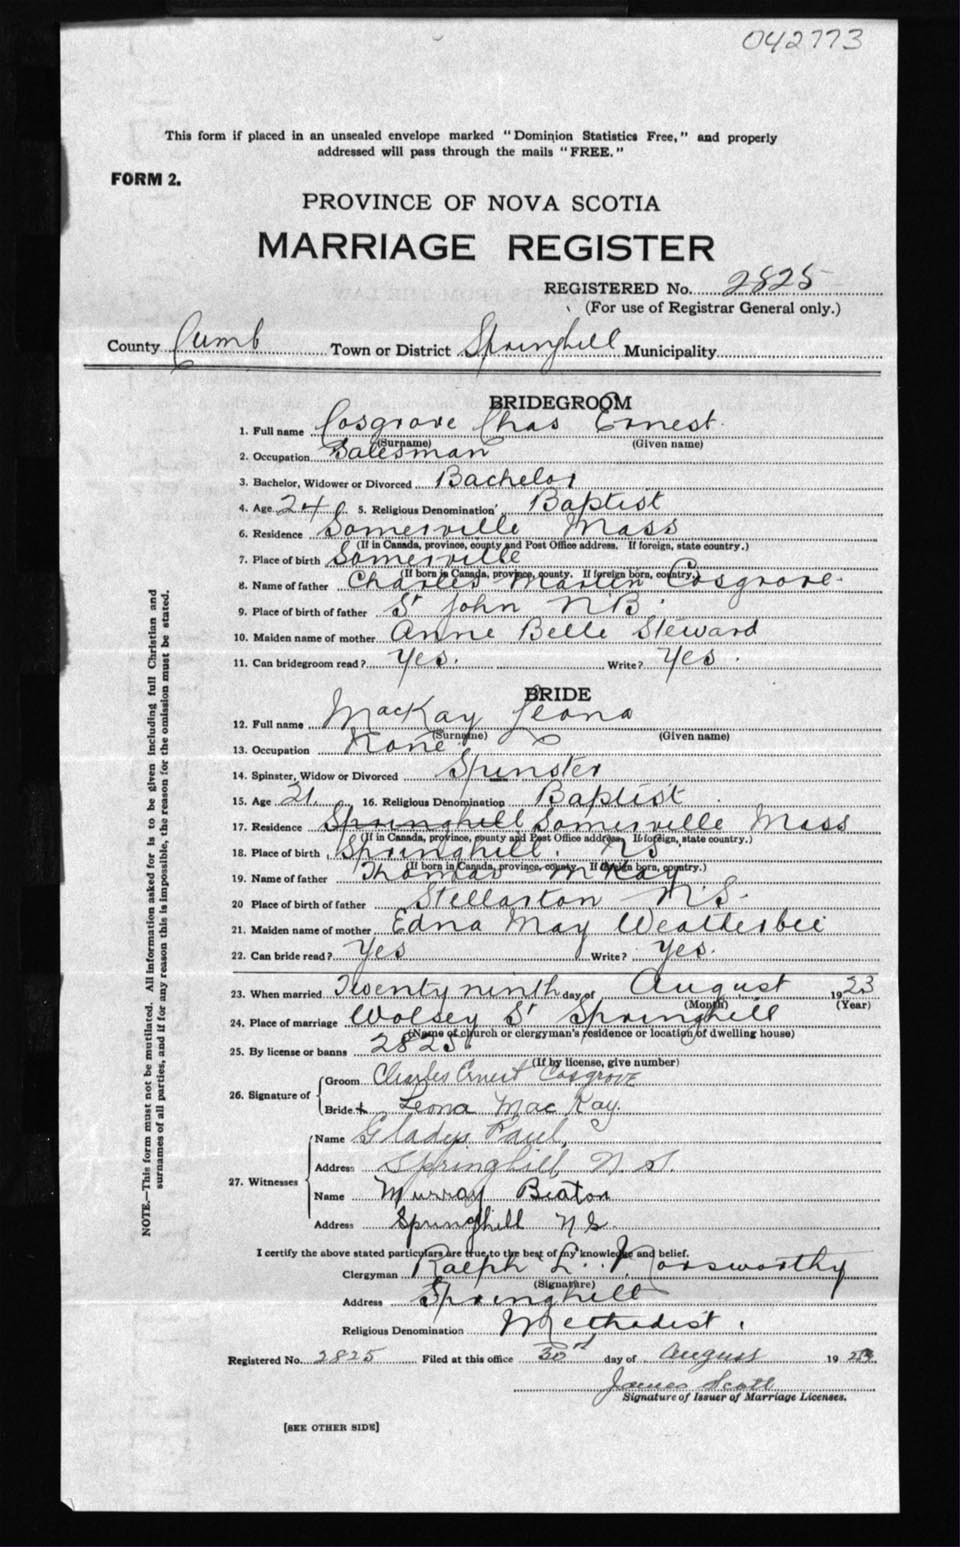 042773
This form if placed in an unsealed envelope marked "Dominion Statistics Free," and properly
addressed will pass through the mails "FREE."
FORM 2.
PROVINCE OF NOVA SCOTIA
MARRIAGE REGISTER
REGISTERED No. 2825
(For use of Registrar General only.)
County Cumb Town or District Springhill Municipality
BRIDEGROOM
1. Full name Cosgrove Chas Ernest
(Surname) (Given name)
2. Occupation Salesman
3. Bachelor, Widower or Divorced Bachelor
4. Age 24 5. Religious Denomination Baptist
6. Residence Somerville Mass
(If in Canada, province, county and Post Office address. If foreign, state country.)
7. Place of birth Somerville
(If born in Canada, province, county. If foreign born, country.)
8. Name of father Charles Martin Cosgrove
9. Place of birth of father St John N.B.
10. Maiden name of mother Anne Belle Steward
11. Can bridegroom read? Yes. Write? Yes.
BRIDE
12. Full name MacKay Leona
(Surname) (Given name)
13. Occupation None
14. Spinster, Widow or Divorced Spinster
15. Age 21. 16. Religious Denomination Baptist
17. Residence Springhill Somerville Mass
(If in Canada, province, county and Post Office address. If foreign, state country.)
18. Place of birth Springhill. NS
(If born in Canada, province, county. If foreign born, country.)
19. Name of father Thomas McKay
20 Place of birth of father Stellarton N.S.
21. Maiden name of mother Edna May Weatherbie
22. Can bride read? Yes Write? Yes.
23. When married Twenty ninth day of August 1923
(Month) (Year)
24. Place of marriage Wolsey St Springhill
(Name of church or clergyman's residence or location of dwelling house)
25. By license or banns 2825
(If by license, give number)
26. Signature of
Groom Charles Ernest Cosgrove
Bride Leona MacKay.
27. Witnesses
Name Gladys Paul,
Address Springhill, N.S.
Name Murray Beaton
Address Springhill N S.
I certify the above stated particulars are true to the best of my knowledge and belief.
Clergyman Ralph L. Norsworthy
(Signature)
Address Springhill
Religious Denomination Methodist.
Registered No. 2825 Filed at this office 30th day of August 1923
James Scott
Signature of Issuer of Marriage Licenses.
[SEE OTHER SIDE]
NOTE.—This form must not be mutilated. All information asked for is to be given including full Christian and
surnames of all parties, and if for any reason this is impossible, the reason for the omission must be stated.